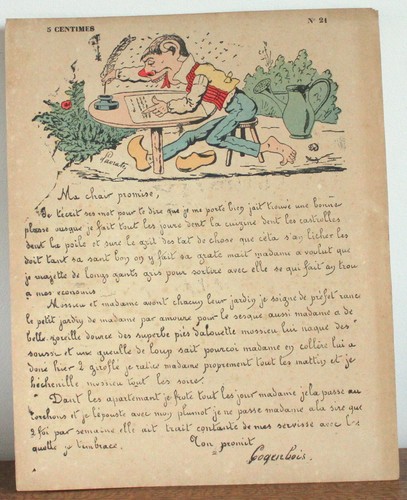 5 CENTIMES
N° 21
Ma chair promise,
Je t'écrit ses mot pour te dire que je me porte bien jait trouvé une bonne
plasse ousque je fait tout les jours dent la cuizine dent les castrolles
dent la poile et sur le gril des tat de chose que c'éta s'an licher les
doit tant sa sant bon on y fait sa grate mait madame a voulut que
je m'ajette de longs gants gris pour sortire avec elle se qui fait un trou
a mes économis
Mossieu et madame avont chacun leur jardin je soigne de préfet rance
le petit jardin de madame par amoure pour le sesque aussi madame a de
belle oreille dource des superbe piès dalouette mossieu lui naque des
soussit et une gueulle de loup sait pourcoi madame en colère lui a
donc hier 2 girofle je ratice madame proprement tout les mattin et je
héchenille mossieu tout les soire.
Dant les apartement je frote tout les jour madame je la passe au
torchons et je l'épouste avec mon plumot je ne passe madame a la sire que
2 foi par semaine elle ait trait contante de mes servisse avec les
quelle je t'embrace.
Ton promit